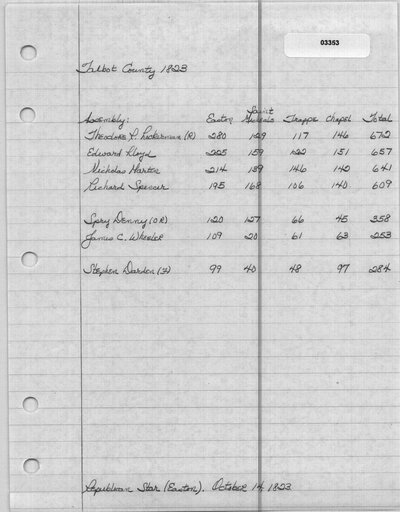 03353
Talbot County 1823
Saint
Assembly: Easton Michaels Trappe Chapel Total
Theodore R. Lockerman (R) 280 129 117 146 672
Edward Lloyd 225 159 122 151 657
Nicholas Martin 214 139 146 142 641
Richard Spencer 195 168 106 140 609
Spry Denny (OR) 120 127 66 45 358
James C. Wheeler 109 20 61 63 253
Stephen Darden (F) 99 40 48 97 284
Republican Star (Easton). October 14, 1823